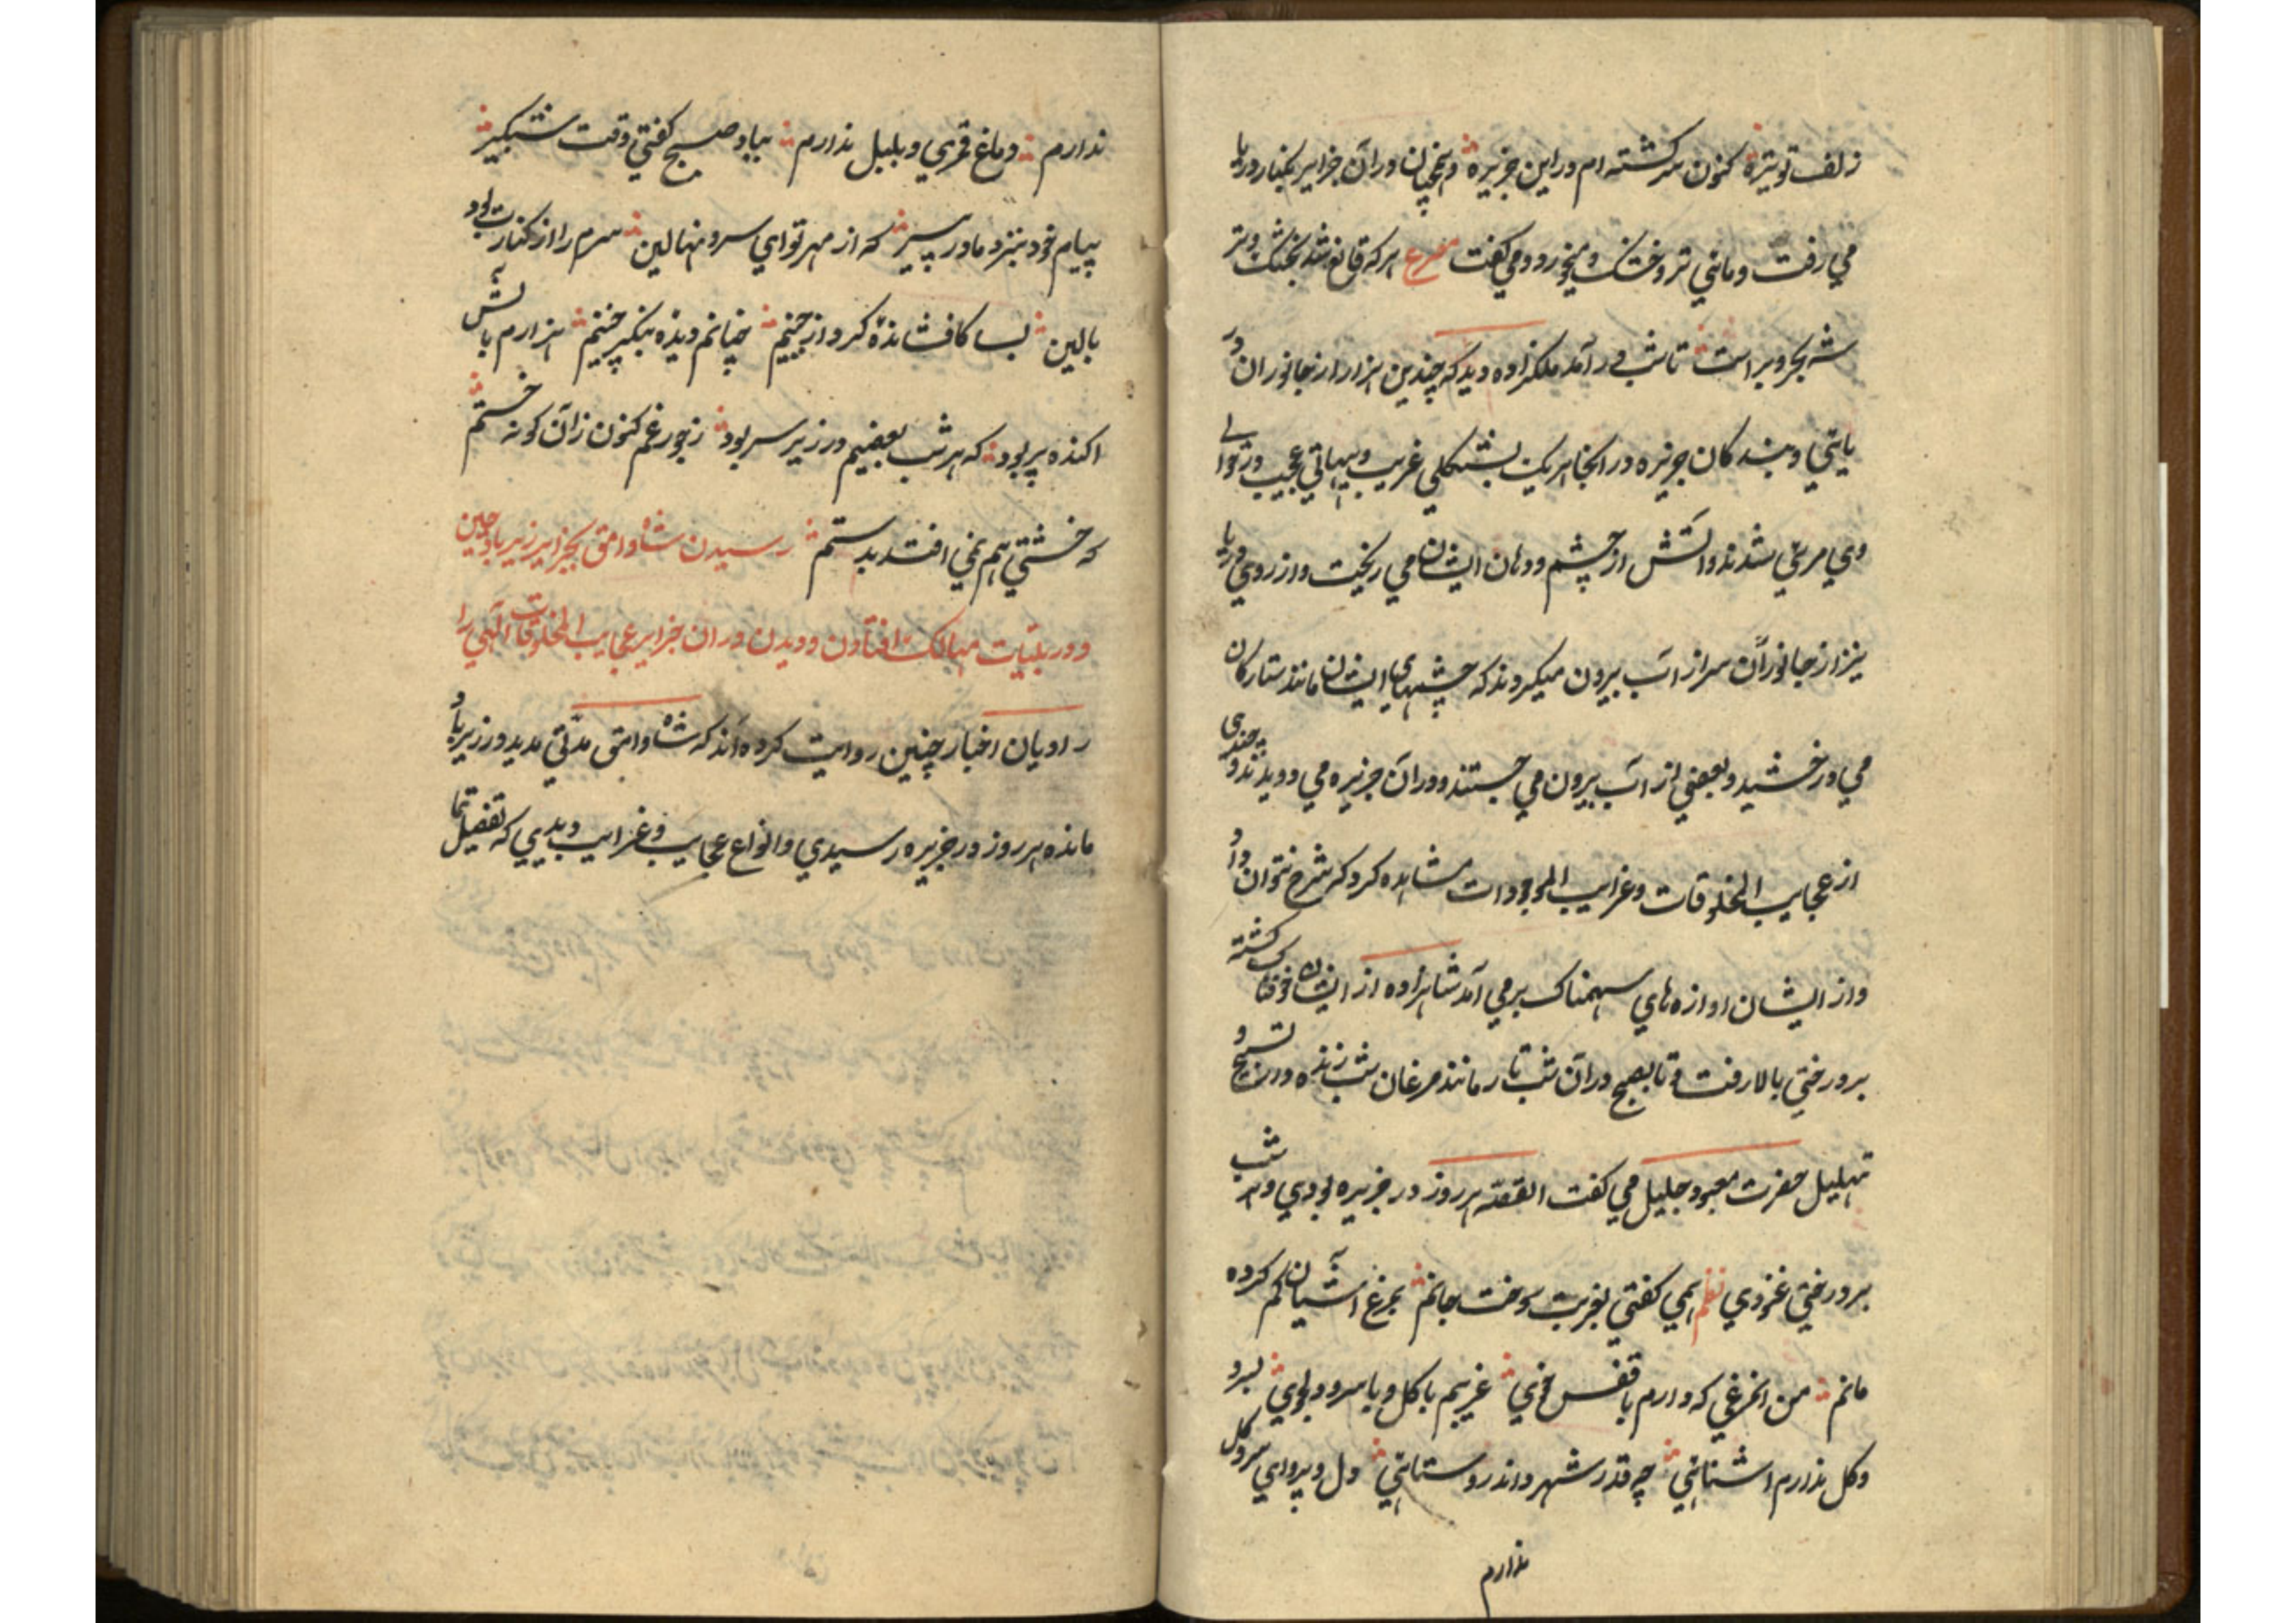 زلف تو تیره کنون سرکشته ام در این جزیره و همچنان در آن جزایر بکنار دریا
می رفت و ماهی تر و خشک میخورد و می گفت مصرع هر که قانع شد بخشک و تر
شه بحر و بر است تا شب در آمد ملکزاده دید که چندین هزار از جانوران در
یایی و بندگان جزیره در انجا هر یک بشکلی غریب و هیأتی عجیب در حوالی
وی مرئی شدند و اتش از چشم و دهان ایشان می ریخت و از روی دریا
نیز از جانوران سر از اب بیرون میکردند که چشمهای ایشان مانند ستارکان
می درخشید و بعضی از اب بیرون می جستند و در آن جزیره می دویدند و چندی
از عجایب المخلوقات و غرایب الموجودات مشاهده کرد که شرح نتوان داد
و از ایشان اوازه های سهمناک بر می آمد شاهزاده از ایشان خوفناک کشته
بر درختی بالا رفت و تا بصبح در آن شب تار مانند مرغان شب زنده در تسبیح و
تهلیل حضرت معبود جلیل می کفت القصه هر روز در جزیره بودی و هر شب
بر درختی غنودی نظم همی کفتی بغربت سوخت جانم بمرغ آشیان کم کرده
مانم من انمرغی که دارم با قفس خوی غریبم با کل و با سرو دلجوی بسرو
و کل ندارم اشنائی چه قدر شهر داند روستائی دل و پروای سرو و کل
ندارم
ندارم دماغ قمری و بلبل ندارم بیاد صبح کفتی وقت شبکیر
پیام خود بنزد مادر پیر که از مهر تو ای سرو نهالین سرم را از کنارت بود
بالین بسا کافشانده کرد از جبینم چنانم دیده بنکر چنینم هزارم بالش
اکنده پر بود که هر شب بعضیم در زیر سر بود ز جور غم کنون زآن کونه خستم
که خشتی هم نمی افتد بدستم رسیدن شاه وامق بجزایر زیرباد چین
و در بلیات مهالک افتادن و دیدن در ان جزایر عجایب المخلوقات آلهی را
راویان اخبار چنین روایت کرده اند که شاه وامق مدتی مدید در زیرباد
مانده هر روز در جزیره رسیدی و انواع عجایب و غرایب دیدی که تفصیل